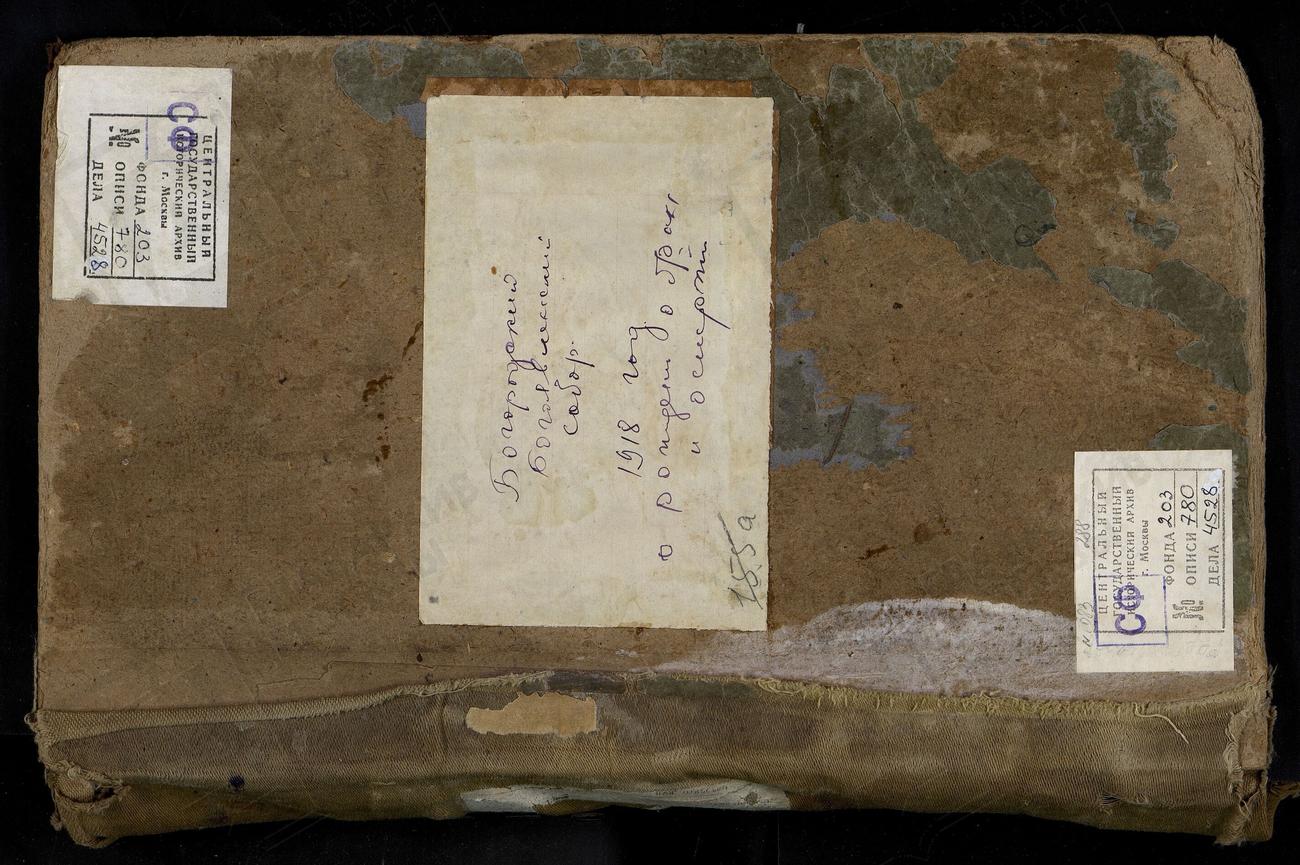 ЦЕНТРАЛЬНЫЙ
ГОСУДАРСТВЕННЫЙ
ИСТОРИЧЕСКИЙ АРХИВ
г. Москвы
СФ
ФОНДА 203
№ ОПИСИ 780
ДЕЛА 4528
Богородский
Богоявленский
собор.
1918 год
о рожден о брак
и о смерти
155а
ЦЕНТРАЛЬНЫЙ
ГОСУДАРСТВЕННЫЙ
ИСТОРИЧЕСКИЙ АРХИВ
г. Москвы
СФ
ФОНДА 203
№ ОПИСИ 780
ДЕЛА 4528